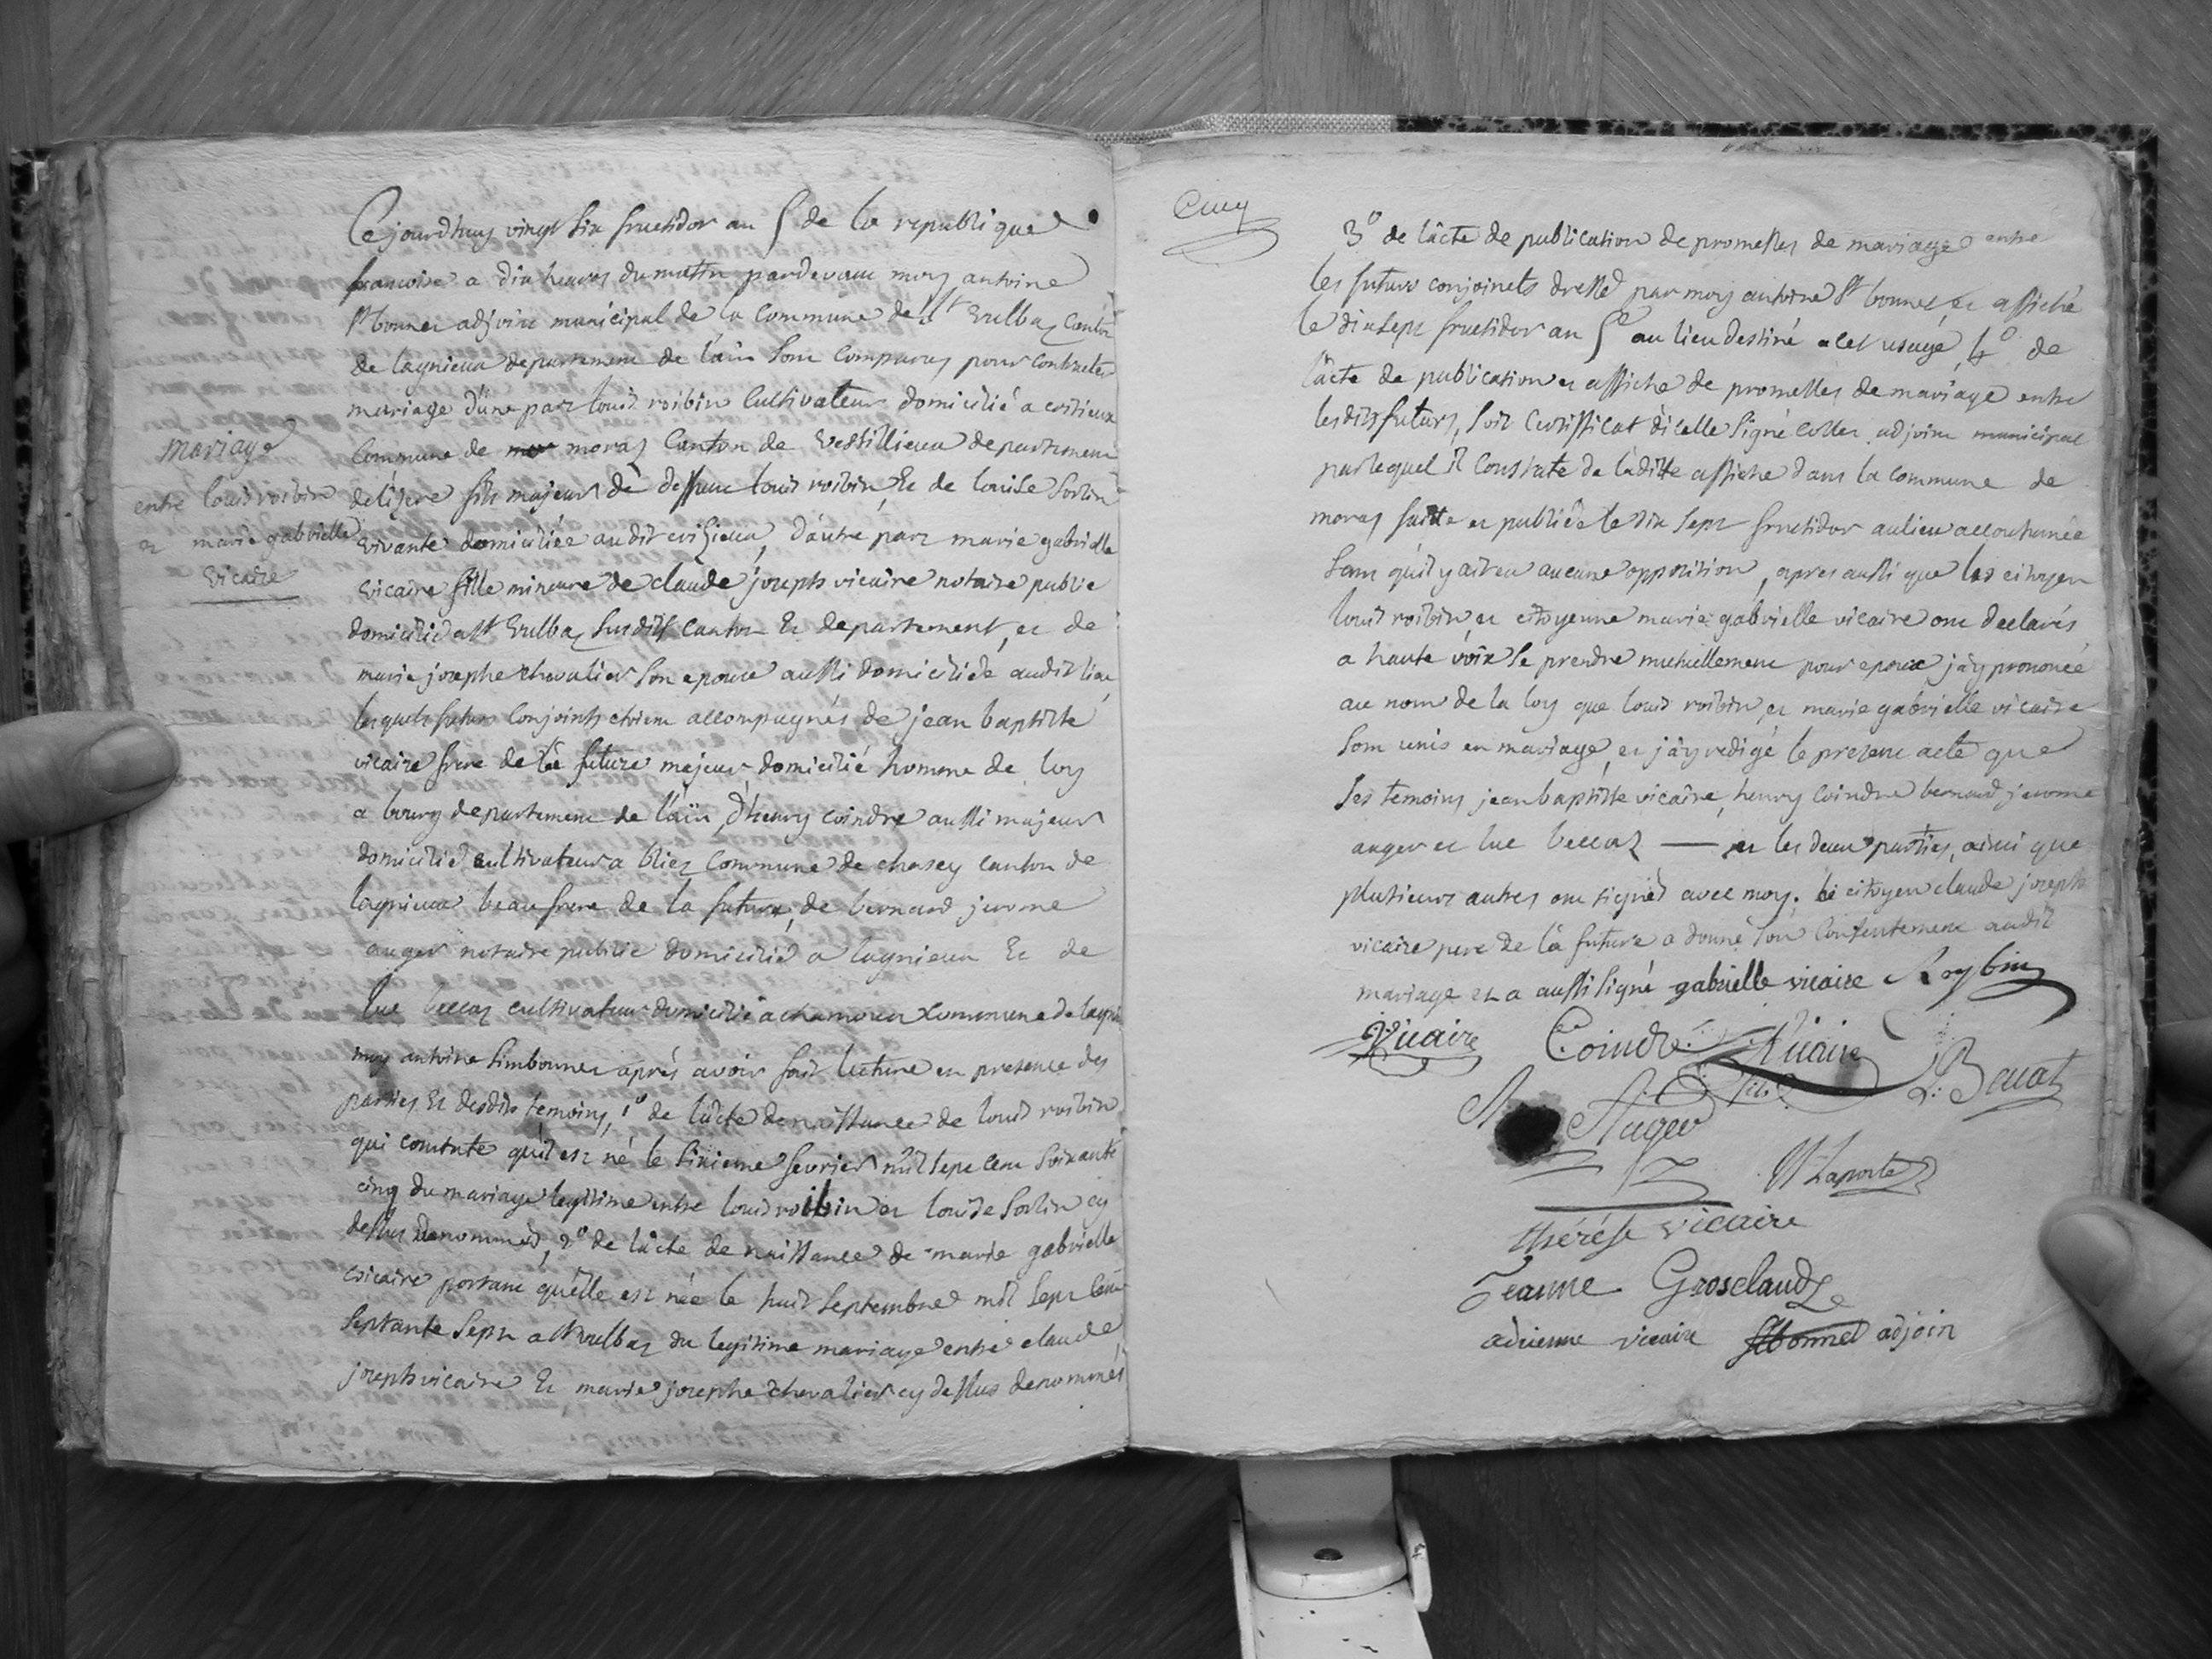 Cejourdhuy vingt six fructidor an 5 de la republique
francoise a dix heures du matin pardevant moy antoine
st bonnet adjoint municipal de la commune de st Vulbaz canton
de lagnieux departement de l'ain sont comparus pour contracter
mariage d'une part louis roibin cultivateur domicilié a crizieux
commune de moras canton de vertillieux departement
mariage
entre louis roibin
et marie gabrielle
vicaire
de lizere fils majeur de deffunt louis roibin, et de louise sorlin
vivante domiciliée audit crizieux, d'autre part marie gabrielle
vicaire fille mineure de claude joseph vicaire notaire public
domicilié a st Vulbaz susdits canton et departement, et de
marie josephe chevalier son epouse aussi domiciliée audit lieu,
lesquels futurs conjoints etoient accompagnés de jean baptiste
vicaire frere de la future majeur domicilié homme de loy
a bourg departement de l'ain, d'henry coindre aussi majeur
domicilié cultivateur a bliez commune de chasey canton de
lagnieux beau frere de la future, de bernard jerome
auger notaire public domicilié a lagnieux et de
luc beccaz cultivateur domicilié a chamoux commune de lagni
moy antoine simbonnet aprés avoir fait lecture en presence des
parties et desdits temoins, 1º de l'acte de naissance de louis roibin
qui constate qu'il est né le sixieme fevrier mil sept cent soixante
cinq du mariage legitime entre louis roibin et louise sorlin cy
dessus denommés, 2º de l'acte de naissance de marie gabrielle
vicaire portant qu'elle est née le huit septembre mil sept cent
septante sept a st Vulbaz du legitime mariage entre claude
joseph vicaire et marie josephe chevalier cy dessus denommés
3º de l'acte de publication de promesses de mariage entre
les futurs conjoincts dressé par moy antoine st bonnet et affiché
le dix sept fructidor an 5e au lieu destiné a cet usage, 4º de
l'acte de publication et affiche de promesses de mariage entre
lesdits futurs, soit certifficat d'icelle signé collet adjoint municipal
par lequel il constate de laditte affiche dans la commune de
moras faitte et publiée le dix sept fructidor au lieu accoutumée
sans qu'il y ait eu aucune opposition, apres aussi que les citoyen
louis roibin et citoyenne marie gabrielle vicaire ont declarés
a haute voix se prendre mutuellement pour epoux j'ay prononcé
au nom de la loy que louis roibin et marie gabrielle vicaire
sont unis en mariage, et j'ay redigé le present acte que
les temoins jean baptiste vicaire, henry coindre bernard jerome
auger et luc beccaz — et les deux parties, ainsi que
plusieurs autres ont signés avec moy. le citoyen claude joseph
vicaire pere de la future a donné son consentement audit
mariage et a aussi signé gabrielle vicaire Roybin
Vicaire Coindre Vicaire
fils L. Becat
Auger
Laporte
thérése vicaire
Jeanne Grosclaude
adrienne vicaire stbonnet adjoin